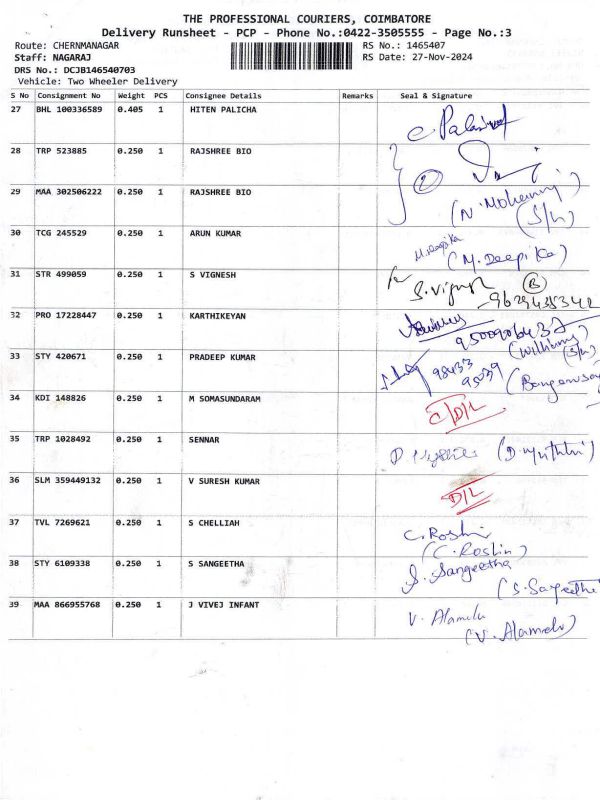 THE PROFESSIONAL COURIERS, COIMBATORE
Delivery Runsheet - PCP - Phone No.:0422-3505555 - Page No.:3
Route: CHERNMANAGAR RS No.: 1465407
Staff: NAGARAJ RS Date: 27-Nov-2024
DRS No.: DCJB146540703
Vehicle: Two Wheeler Delivery
S No Consignment No Weight PCS Consignee Details Remarks Seal & Signature
27 BHL 100336589 0.405 1 HITEN PALICHA
28 TRP 523885 0.250 1 RAJSHREE BIO
29 MAA 302506222 0.250 1 RAJSHREE BIO 2
(S/n)
30 TCG 245529 0.250 1 ARUN KUMAR
(M. Deepika)
31 STR 499059 0.250 1 S VIGNESH S. Vignesh B
9629435342
32 PRO 17228447 0.250 1 KARTHIKEYAN
(S/n)
33 STY 420671 0.250 1 PRADEEP KUMAR 98433
95039
34 KDI 148826 0.250 1 M SOMASUNDARAM C/D/L
35 TRP 1028492 0.250 1 SENNAR
36 SLM 359449132 0.250 1 V SURESH KUMAR D/L
37 TVL 7269621 0.250 1 S CHELLIAH C. Roshni
(C. Roshin)
38 STY 6109338 0.250 1 S SANGEETHA S. Sangeetha
39 MAA 866955768 0.250 1 J VIVEJ INFANT V. Alamelu
(V. Alamelu)